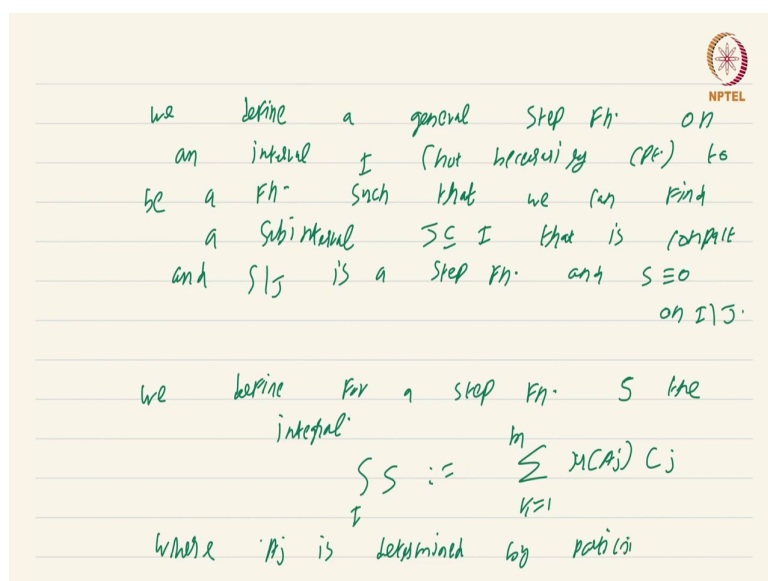 NPTEL
we define a general step Fn. on
an interval I (not necessarily cpt.) to
be a Fn. such that we can find
a subinterval J ⊆ I that is compact
and S|J is a step Fn. and S ≡ 0
on I \ J.
we define for a step Fn. S the
integral.
∫ S := ∑ μ(Aj) Cj
I
m
where Aj is determined by